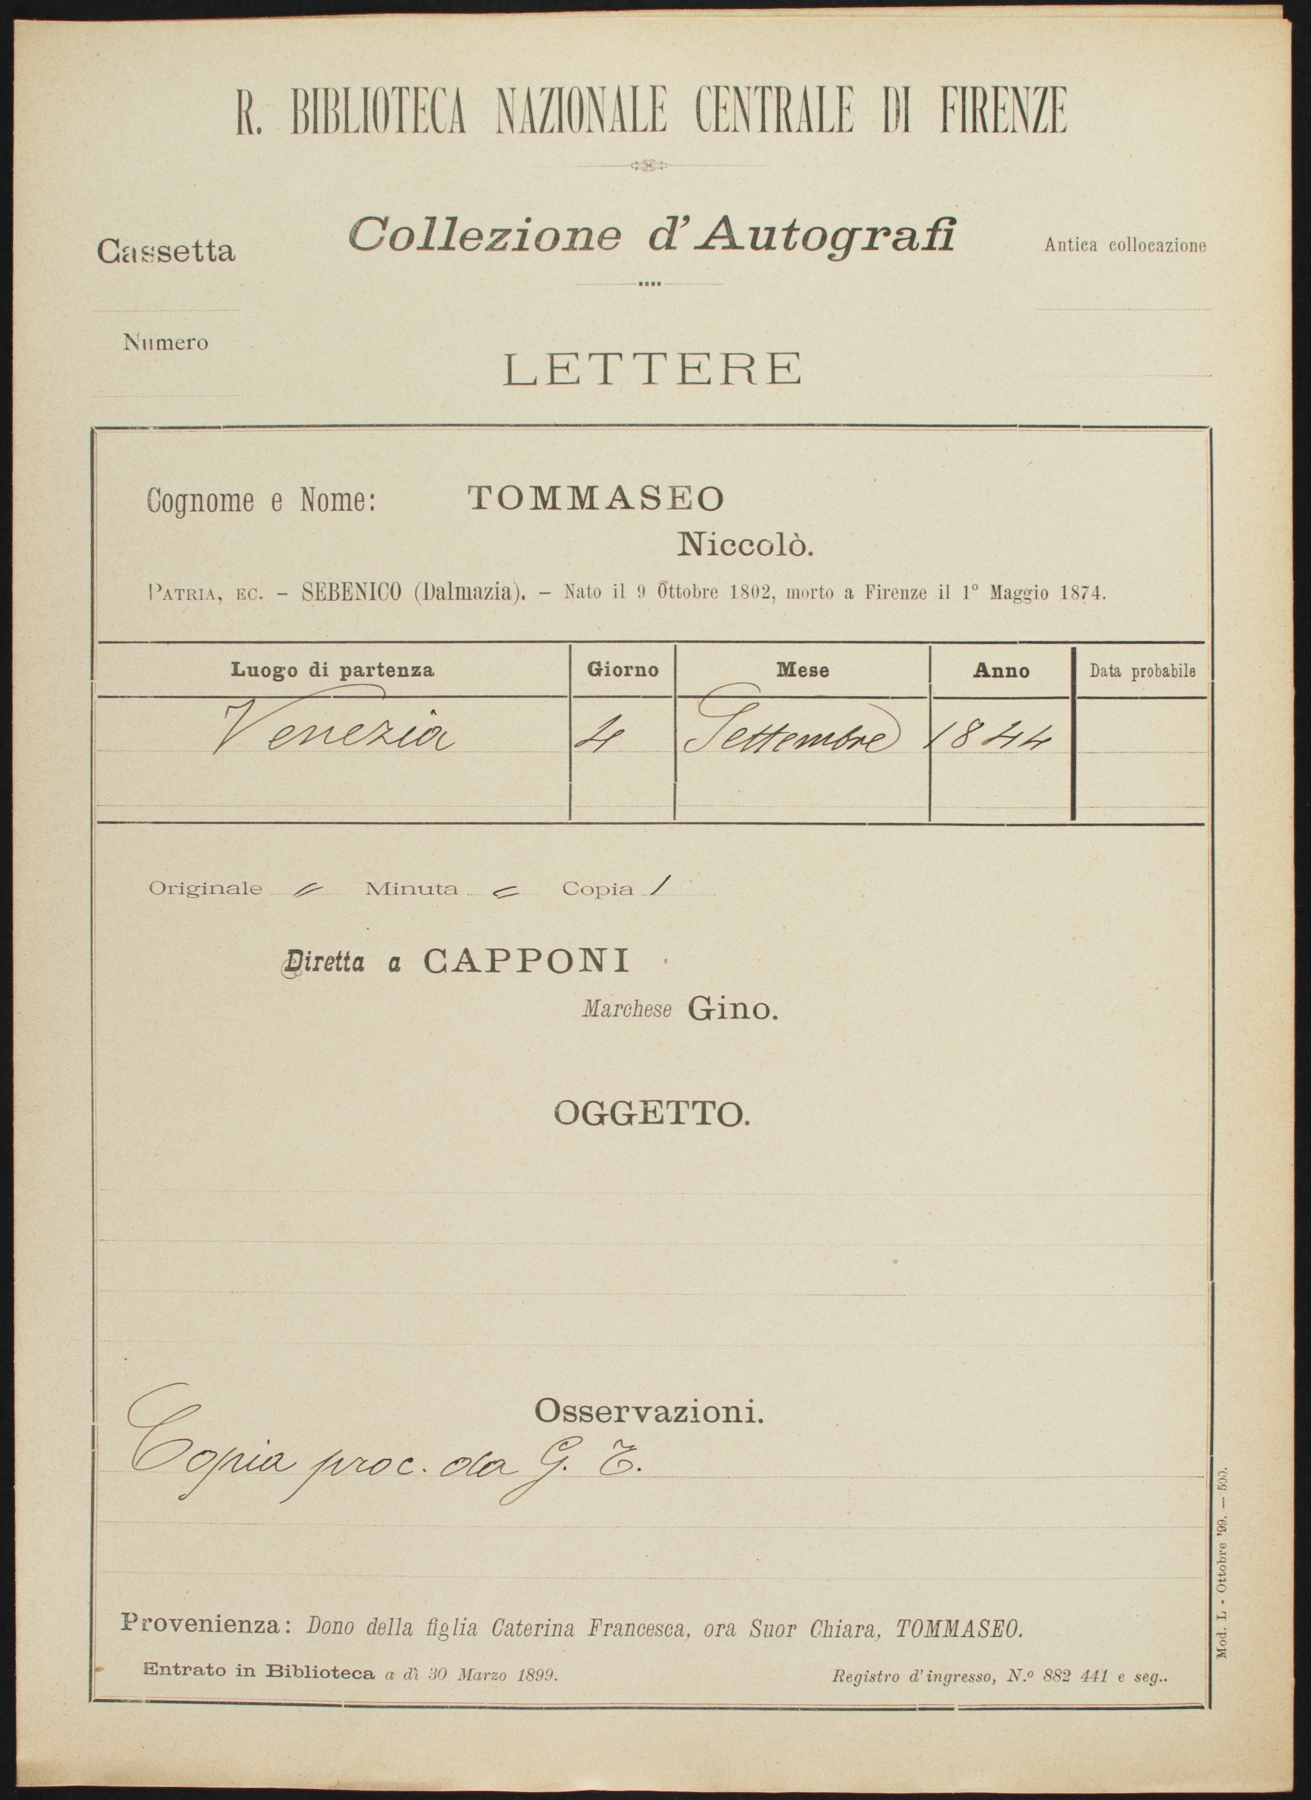 R. BIBLIOTECA NAZIONALE CENTRALE DI FIRENZE
Cassetta
Collezione d'Autografi
Antica collocazione
Numero
LETTERE
Cognome e Nome: TOMMASEO
Niccolò.
PATRIA, EC. – SEBENICO (Dalmazia). – Nato il 9 Ottobre 1802, morto a Firenze il 1° Maggio 1874.
Luogo di partenza Giorno Mese Anno Data probabile
Venezia 4 Settembre 1844
Originale = Minuta = Copia 1
Diretta a CAPPONI
Marchese Gino.
OGGETTO.
Osservazioni.
Copia proc. da G. T.
Provenienza: Dono della figlia Caterina Francesca, ora Suor Chiara, TOMMASEO.
Entrato in Biblioteca a dì 30 Marzo 1899.
Registro d'ingresso, N.º 882 441 e seg..
Mod. L - Ottobre '99. — 500.